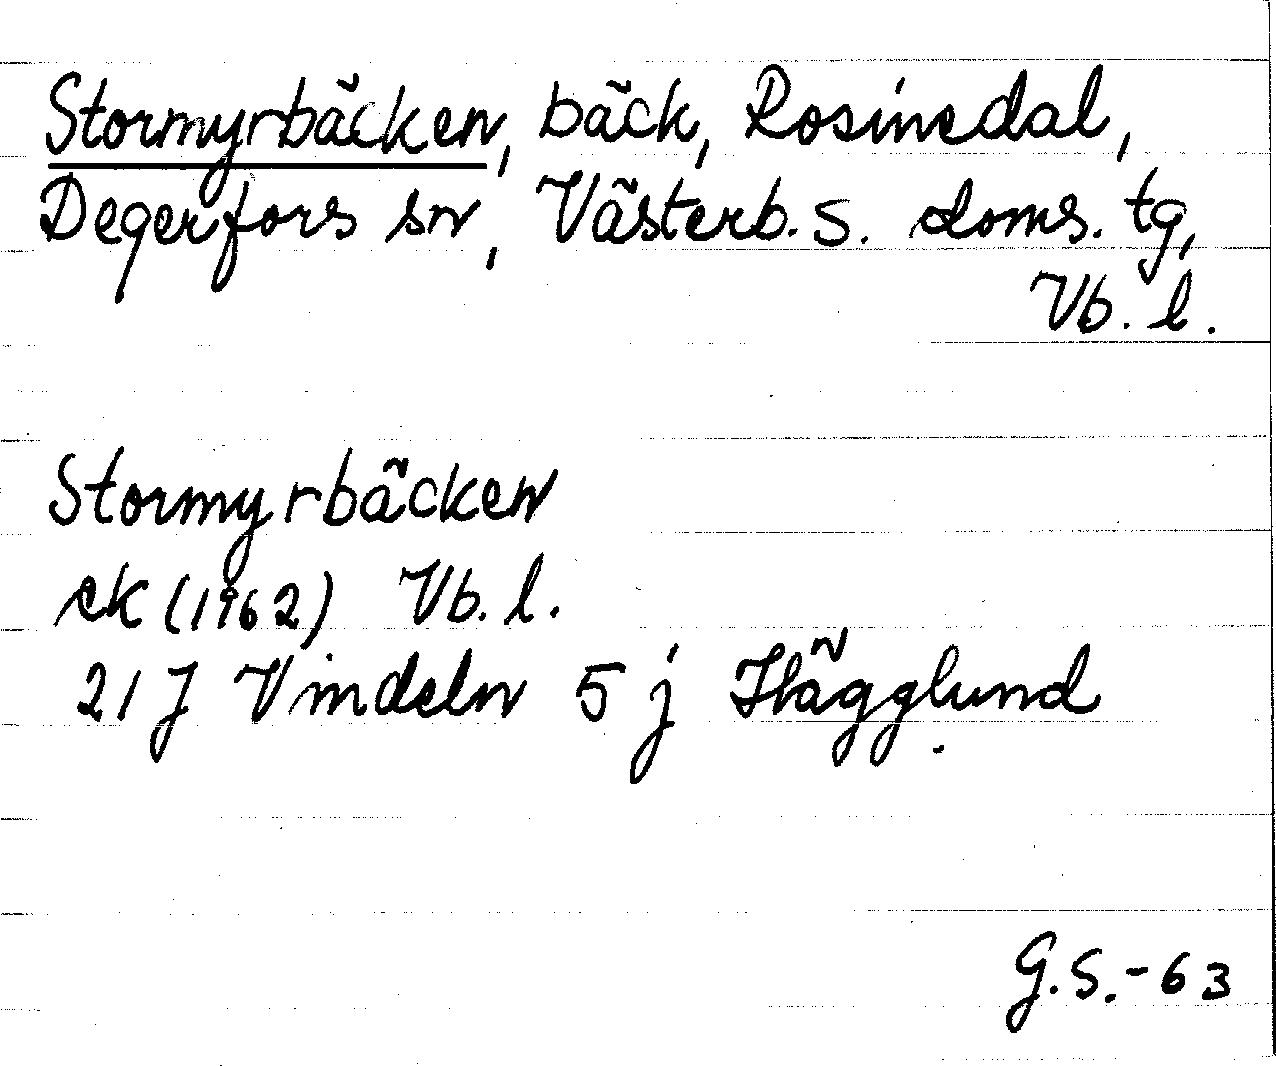 Stormyrbäcken, bäck, Rosinedal,
Degerfors sn, Västerb. s. doms. tg,
Vb. l.
Stormyrbäcken
ek (1962) Vb. l.
21 J Vindeln 5 j Hägglund
G.S.-63